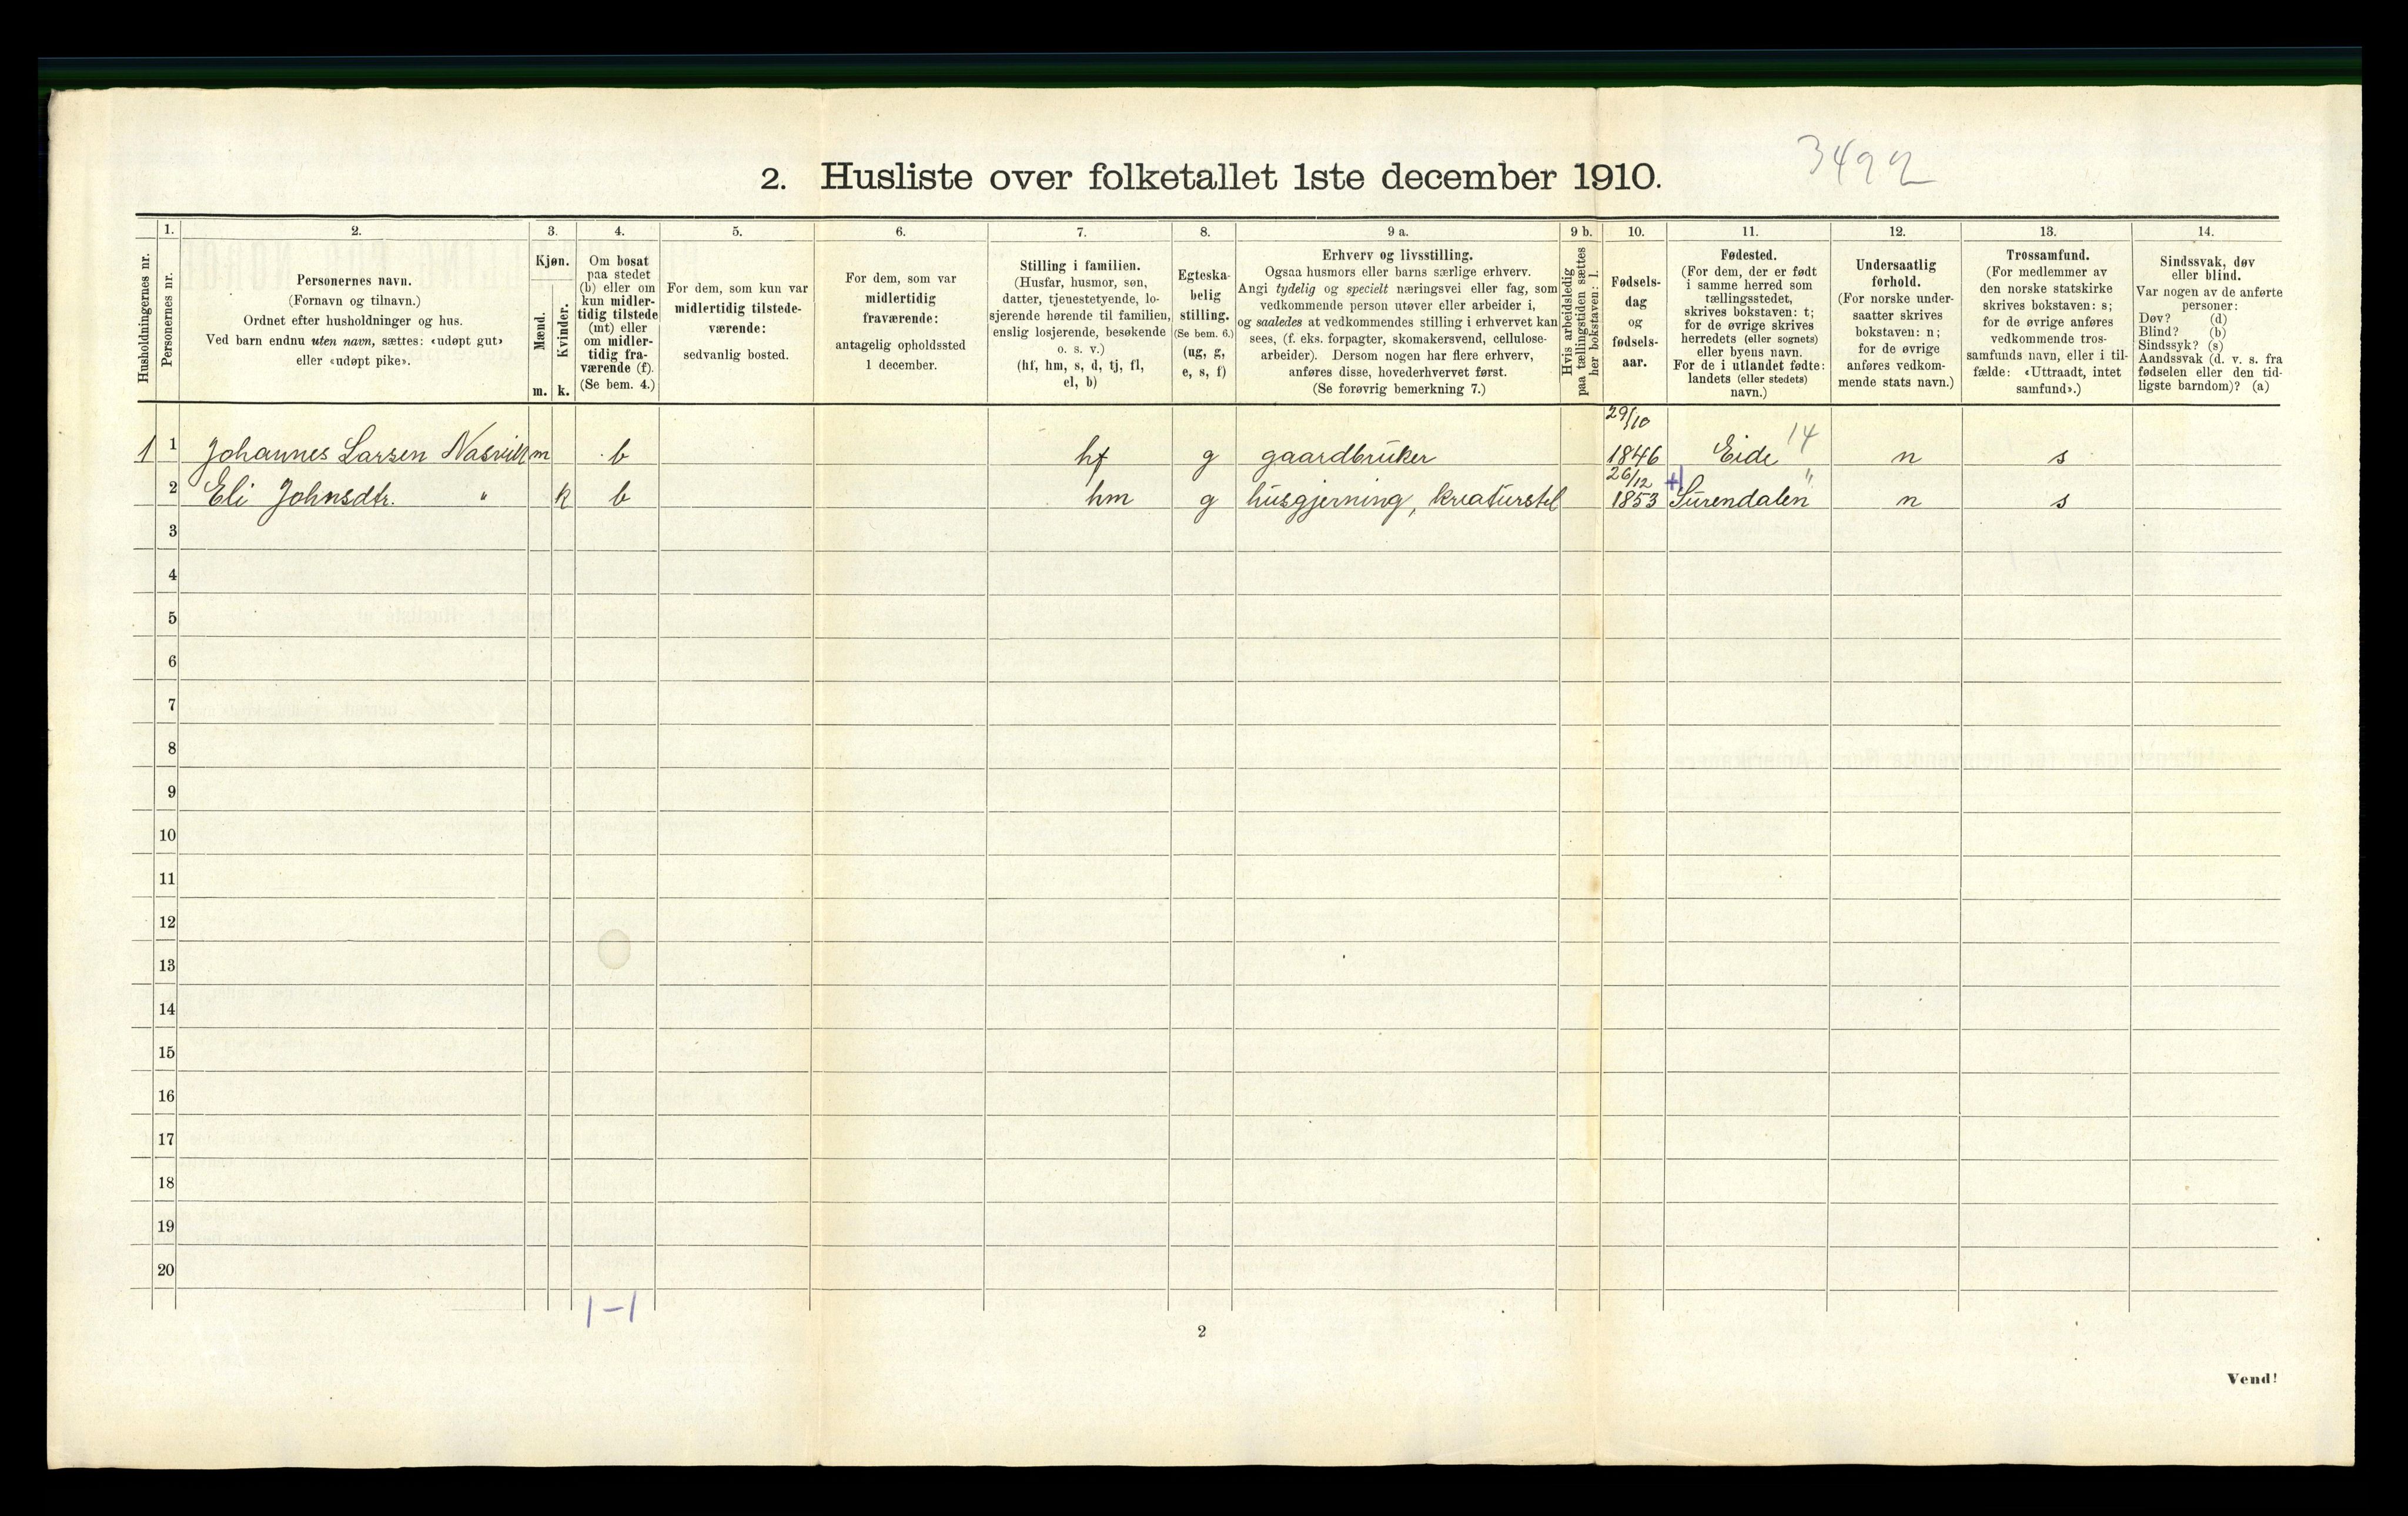 3492
2. Husliste over folketallet 1ste december 1910.
Husholdningernes nr.
1.
Personernes nr.
2.
Personernes navn.
(Fornavn og tilnavn.)
Ordnet efter husholdninger og hus.
Ved barn endnu uten navn, sættes: «udøpt gut»
eller «udøpt pike».
3.
Kjøn.
Mænd.
Kvinder.
m. k.
4.
Om bosat
paa stedet
(b) eller om
kun midler-
tidig tilstede
(mt) eller
om midler-
tidig fra-
værende (f).
(Se bem. 4.)
5.
For dem, som kun var
midlertidig tilstede-
værende:
sedvanlig bosted.
6.
For dem, som var
midlertidig
fraværende:
antagelig opholdssted
1 december.
7.
Stilling i familien.
(Husfar, husmor, søn,
datter, tjenestetyende, lo-
sjerende hørende til familien,
enslig losjerende, besøkende
o. s. v.)
(hf, hm, s, d, tj, fl,
el, b)
8.
Egteska-
belig
stilling.
(Se bem. 6.)
(ug, g,
e, s, f)
9 a.
Erhverv og livsstilling.
Ogsaa husmors eller barns særlige erhverv.
Angi tydelig og specielt næringsvei eller fag, som
vedkommende person utøver eller arbeider i,
og saaledes at vedkommendes stilling i erhvervet kan
sees, (f. eks. forpagter, skomakersvend, cellulose-
arbeider). Dersom nogen har flere erhverv,
anføres disse, hovederhvervet først.
(Se forøvrig bemerkning 7.)
9 b.
Hvis arbeidsledig
paa tællingstiden sættes
her bokstaven: l.
10.
Fødsels-
dag
og
fødsels-
aar.
11.
Fødested.
(For dem, der er født
i samme herred som
tællingsstedet,
skrives bokstaven: t;
for de øvrige skrives
herredets (eller sognets)
eller byens navn.
For de i utlandet fødte:
landets (eller stedets)
navn.)
12.
Undersaatlig
forhold.
(For norske under-
saatter skrives
bokstaven: n;
for de øvrige
anføres vedkom-
mende stats navn.)
13.
Trossamfund.
(For medlemmer av
den norske statskirke
skrives bokstaven: s;
for de øvrige anføres
vedkommende tros-
samfunds navn, eller i til-
fælde: «Uttraadt, intet
samfund».)
14.
Sindssvak, døv
eller blind.
Var nogen av de anførte
personer:
Døv? (d)
Blind? (b)
Sindssyk? (s)
Aandssvak (d. v. s. fra
fødselen eller den tid-
ligste barndom)? (a)
1 1 Johannes Larsen Nasvik m b hf g gaardbruker 29/10 1846 Eide 14 n s
2 Eli Johnsdtr. " k b hm g husgjerning, kreaturstel 26/12 1853 Surendalen " n s
3
4
5
6
7
8
9
10
11
12
13
14
15
16
17
18
19
20
1-1
2
Vend!